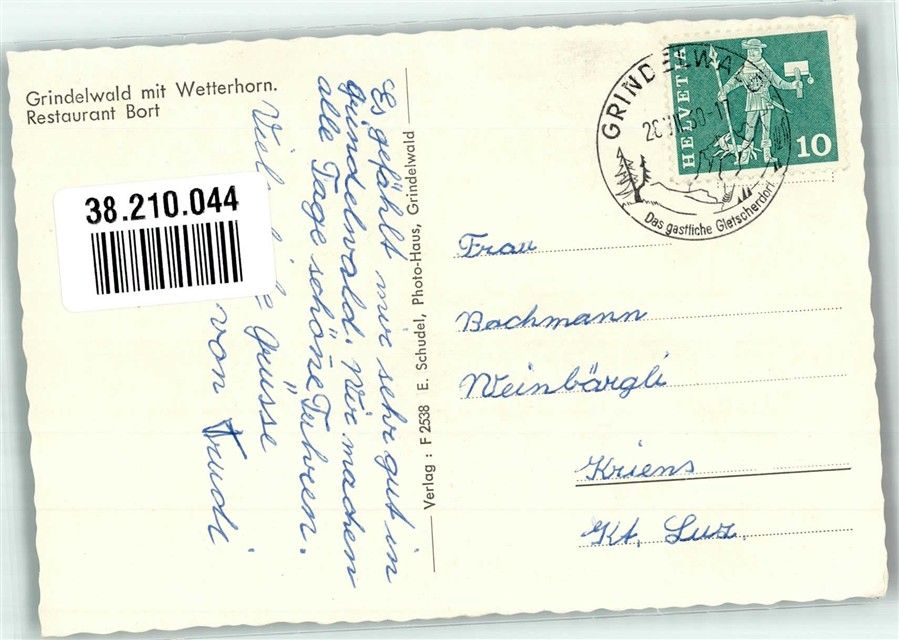 Grindelwald mit Wetterhorn.
Restaurant Bort
38.210.044
Es gefählt mir sehr gut in
Grindelwald. Wir machen
alle Tage schöne Tuhren.
Viel
Grüsse
von Trudi
Verlag: F 2538 E. Schudel, Photo-Haus, Grindelwald
GRINDELWALD
Das gastliche Gletscherdorf
HELVETIA
10
Frau
Bachmann
Weinbärgli
Kriens
Kt. Luz.